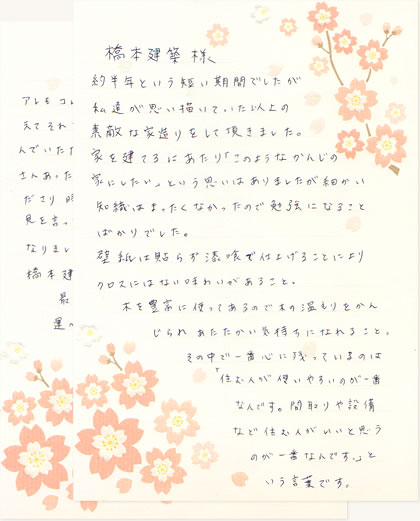 橋本建築様
約半年という短い期間でしたが
私達が思い描いていた以上の
素敵な家造りをして頂きました。
家を建てるにあたり「このようなかんじの
家にしたい」という思いはありましたが細かい
知識はまったくなかったので勉強になること
ばかりでした。
壁紙は貼らず漆喰で仕上げることにより
クロスにはない味わいがあること。
木を豊富に使ってあるので木の温もりをかん
じられあたたかい気持ちになれること。
その中で一番心に残っているのは
「住む人が使いやすいのが一番
なんです。間取りや設備
など住む人がいいと思う
のが一番なんです。」と
いう言葉です。
アレもコレ
えてそれ
んでいた
さんあった
ださり
見を言っ
なりまし
橋本建